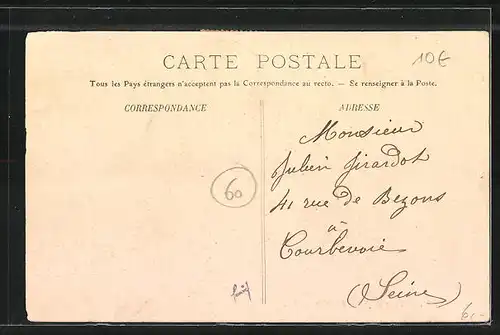 CARTE POSTALE
10€
Tous les Pays étrangers n'acceptent pas la Correspondance au recto. — Se renseigner à la Poste.
CORRESPONDANCE
ADRESSE
Monsieur
Julien Girardot
41 rue de Bezons
à
Courbevoie
(Seine)
60
6,-